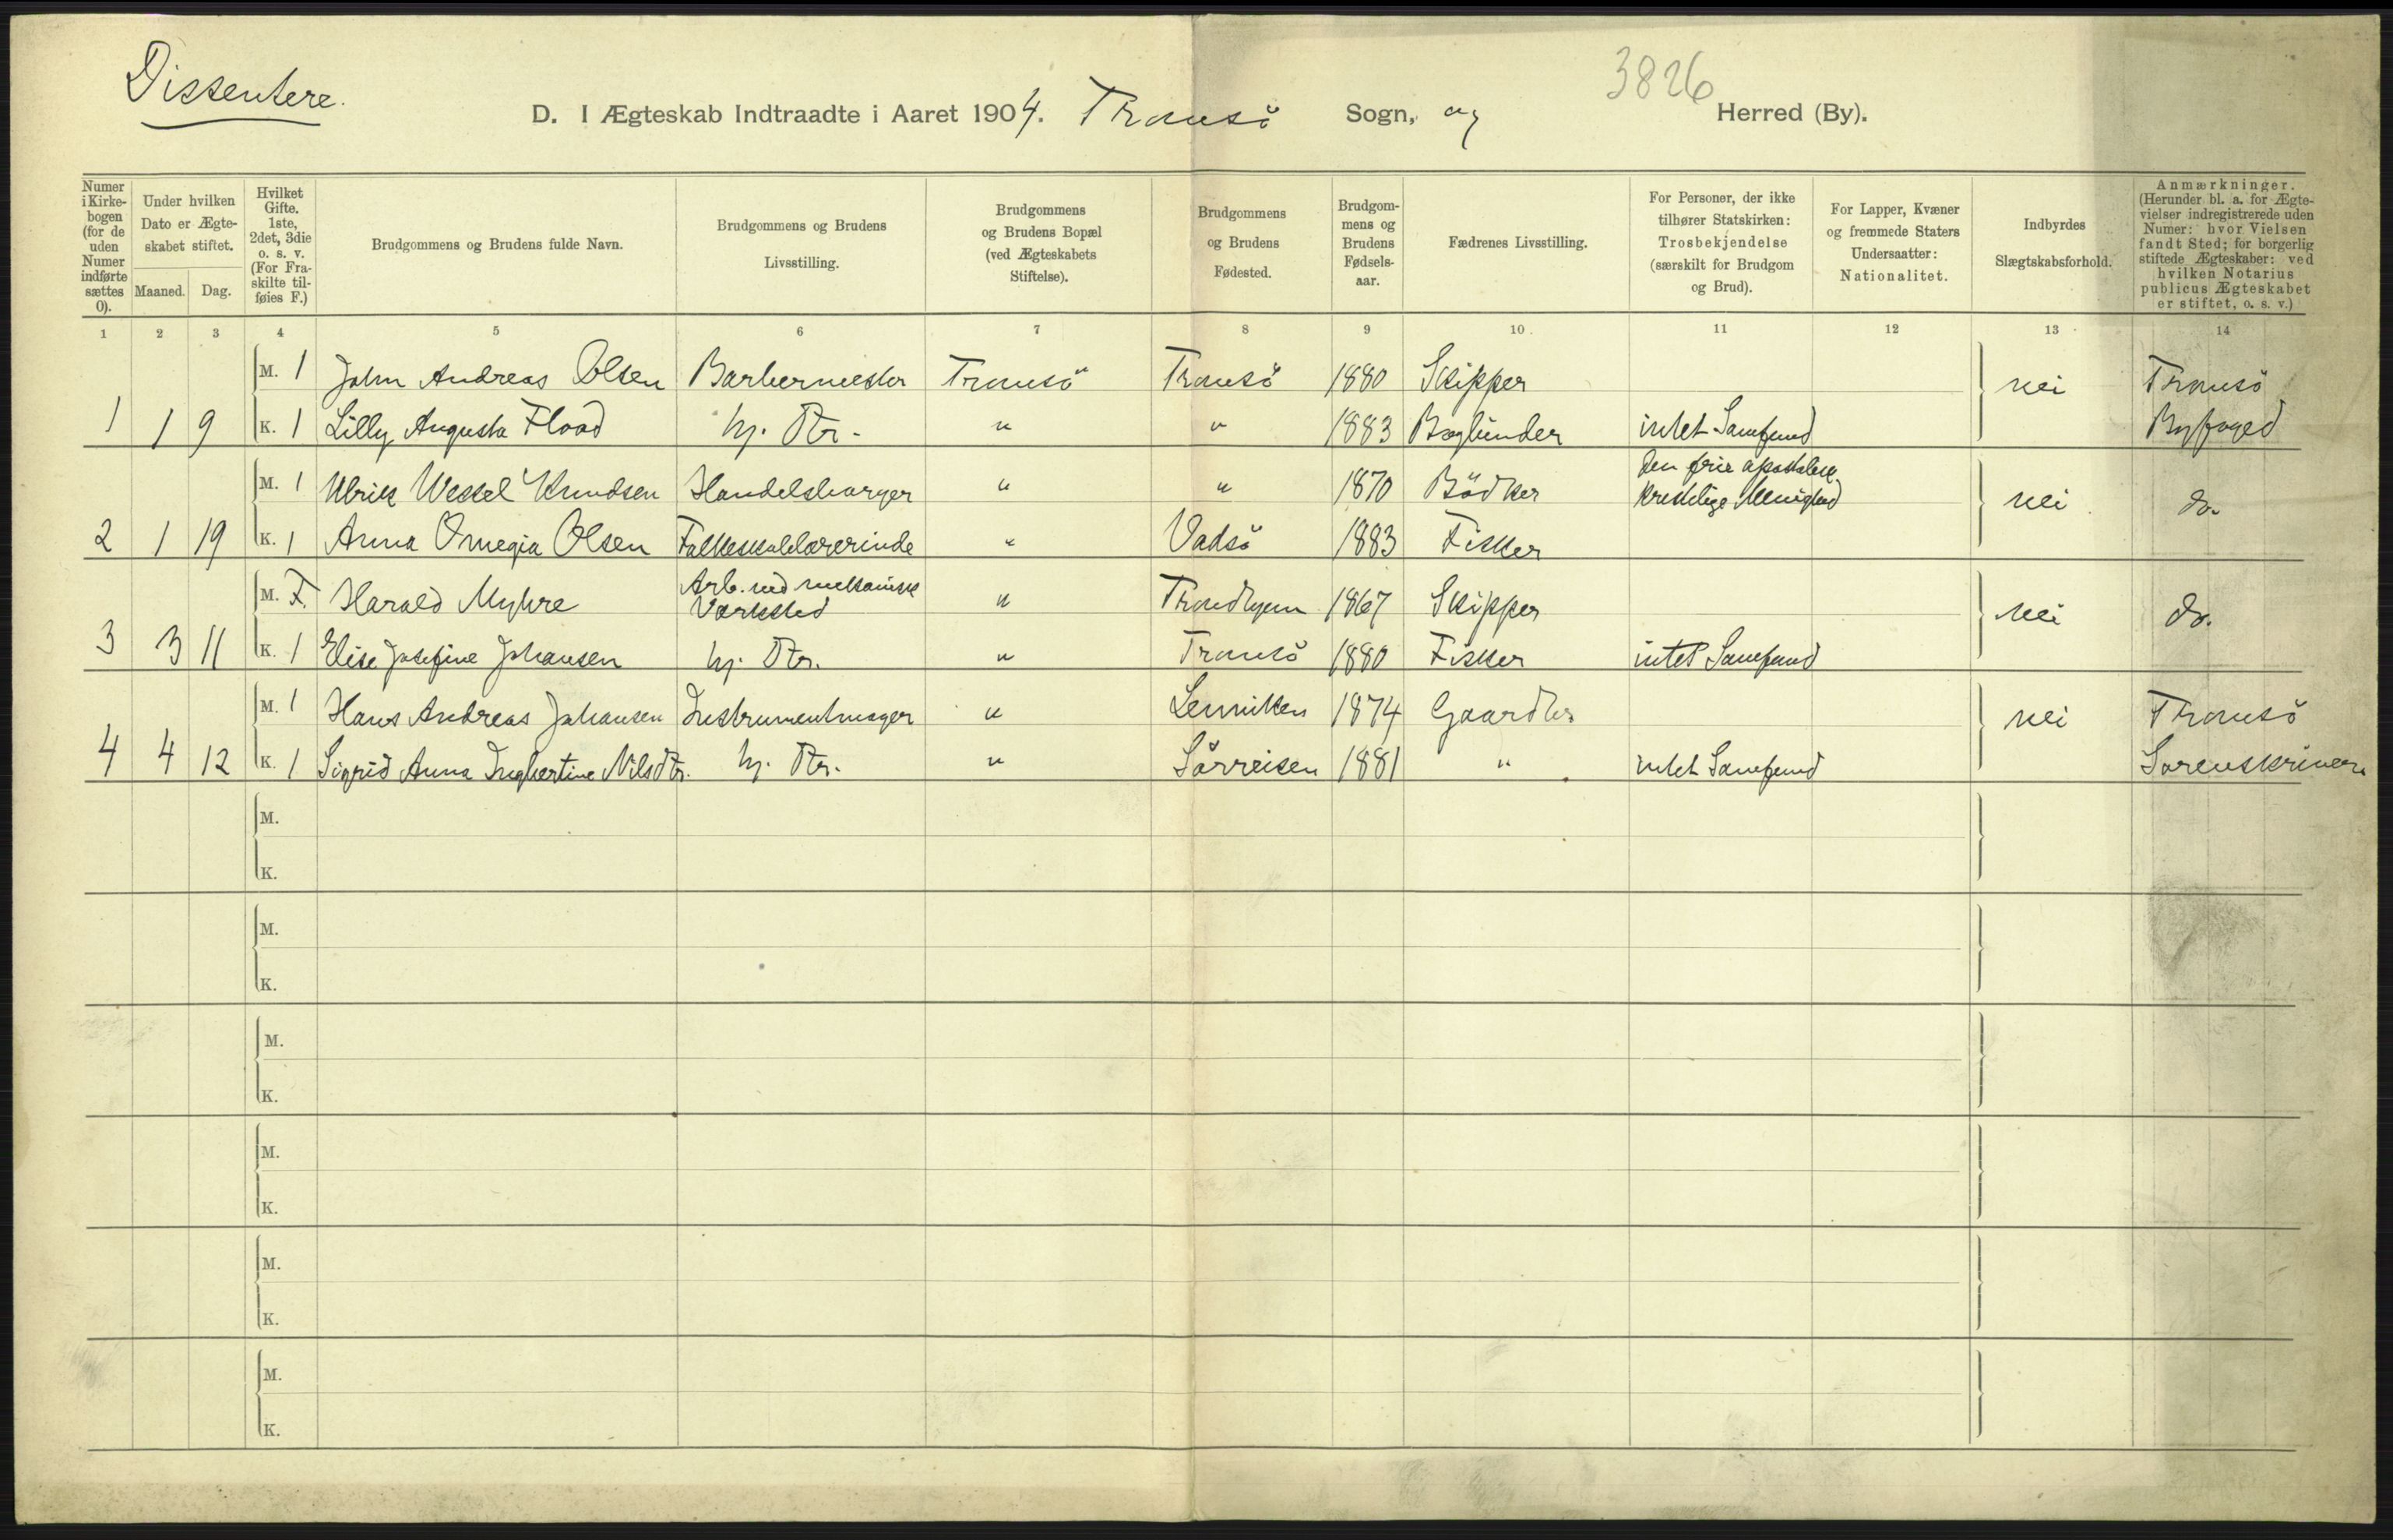 Dissentere.
3826
D. I Ægteskab Indtraadte i Aaret 1904. Tromsö Sogn, og Herred (By).
Numer i Kirke-bogen (for de uden Numer indførte sættes 0).
Under hvilken Dato er Ægte-skabet stiftet.
Maaned. Dag.
Hvilket Gifte. 1ste, 2det, 3die o. s. v. (For Fra-skilte til-føies F.)
Brudgommens og Brudens fulde Navn.
Brudgommens og Brudens Livsstilling.
Brudgommens og Brudens Bopæl (ved Ægteskabets Stiftelse).
Brudgommens og Brudens Fødested.
Brudgom-mens og Brudens Fødsels-aar.
Fædrenes Livsstilling.
For Personer, der ikke tilhører Statskirken: Trosbekjendelse (særskilt for Brudgom og Brud).
For Lapper, Kvæner og fremmede Staters Undersaatter: Nationalitet.
Indbyrdes Slægtskabsforhold.
Anmærkninger. (Herunder bl. a. for Ægte-vielser indregistrerede uden Numer: hvor Vielsen fandt Sted; for borgerlig stiftede Ægteskaber: ved hvilken Notarius publicus Ægteskabet er stiftet, o. s. v.)
1 2 3 4 5 6 7 8 9 10 11 12 13 14
M. 1 John Andreas Olsen Barbermester Tromsö Tromsö 1880 Skipper nei Tromsö
1 1 9 K. 1 Lilly Augusta Flood hj. Dtr. " " 1883 Bogbinder intet Samfund Byfoged
M. 1 Ulrik Wessel Knudsen Handelsborger " " 1870 Bödker Den frie apostolisk kristelige Menighed nei do.
2 1 19 K. 1 Anna Omegia Olsen Folkeskolelærerinde " Vadsö 1883 Fisker
M. F. Harald Myhre Arb. ved mekanisk Værksted " Trondhjem 1867 Skipper nei do.
3 3 11 K. 1 Elise Josefine Johansen hj. Dtr. " Tromsö 1880 Fisker intet Samfund
M. 1 Hans Andreas Johansen Instrumentmager " Lenviken 1874 Gaardbr nei Tromsö
4 4 12 K. 1 Sigrid Anna Ingbertine Nilsdtr. hj. Dtr. " Sörreisen 1881 " intet Samfund Sorenskriveri
M.
K.
M.
K.
M.
K.
M.
K.
M.
K.
M.
K.